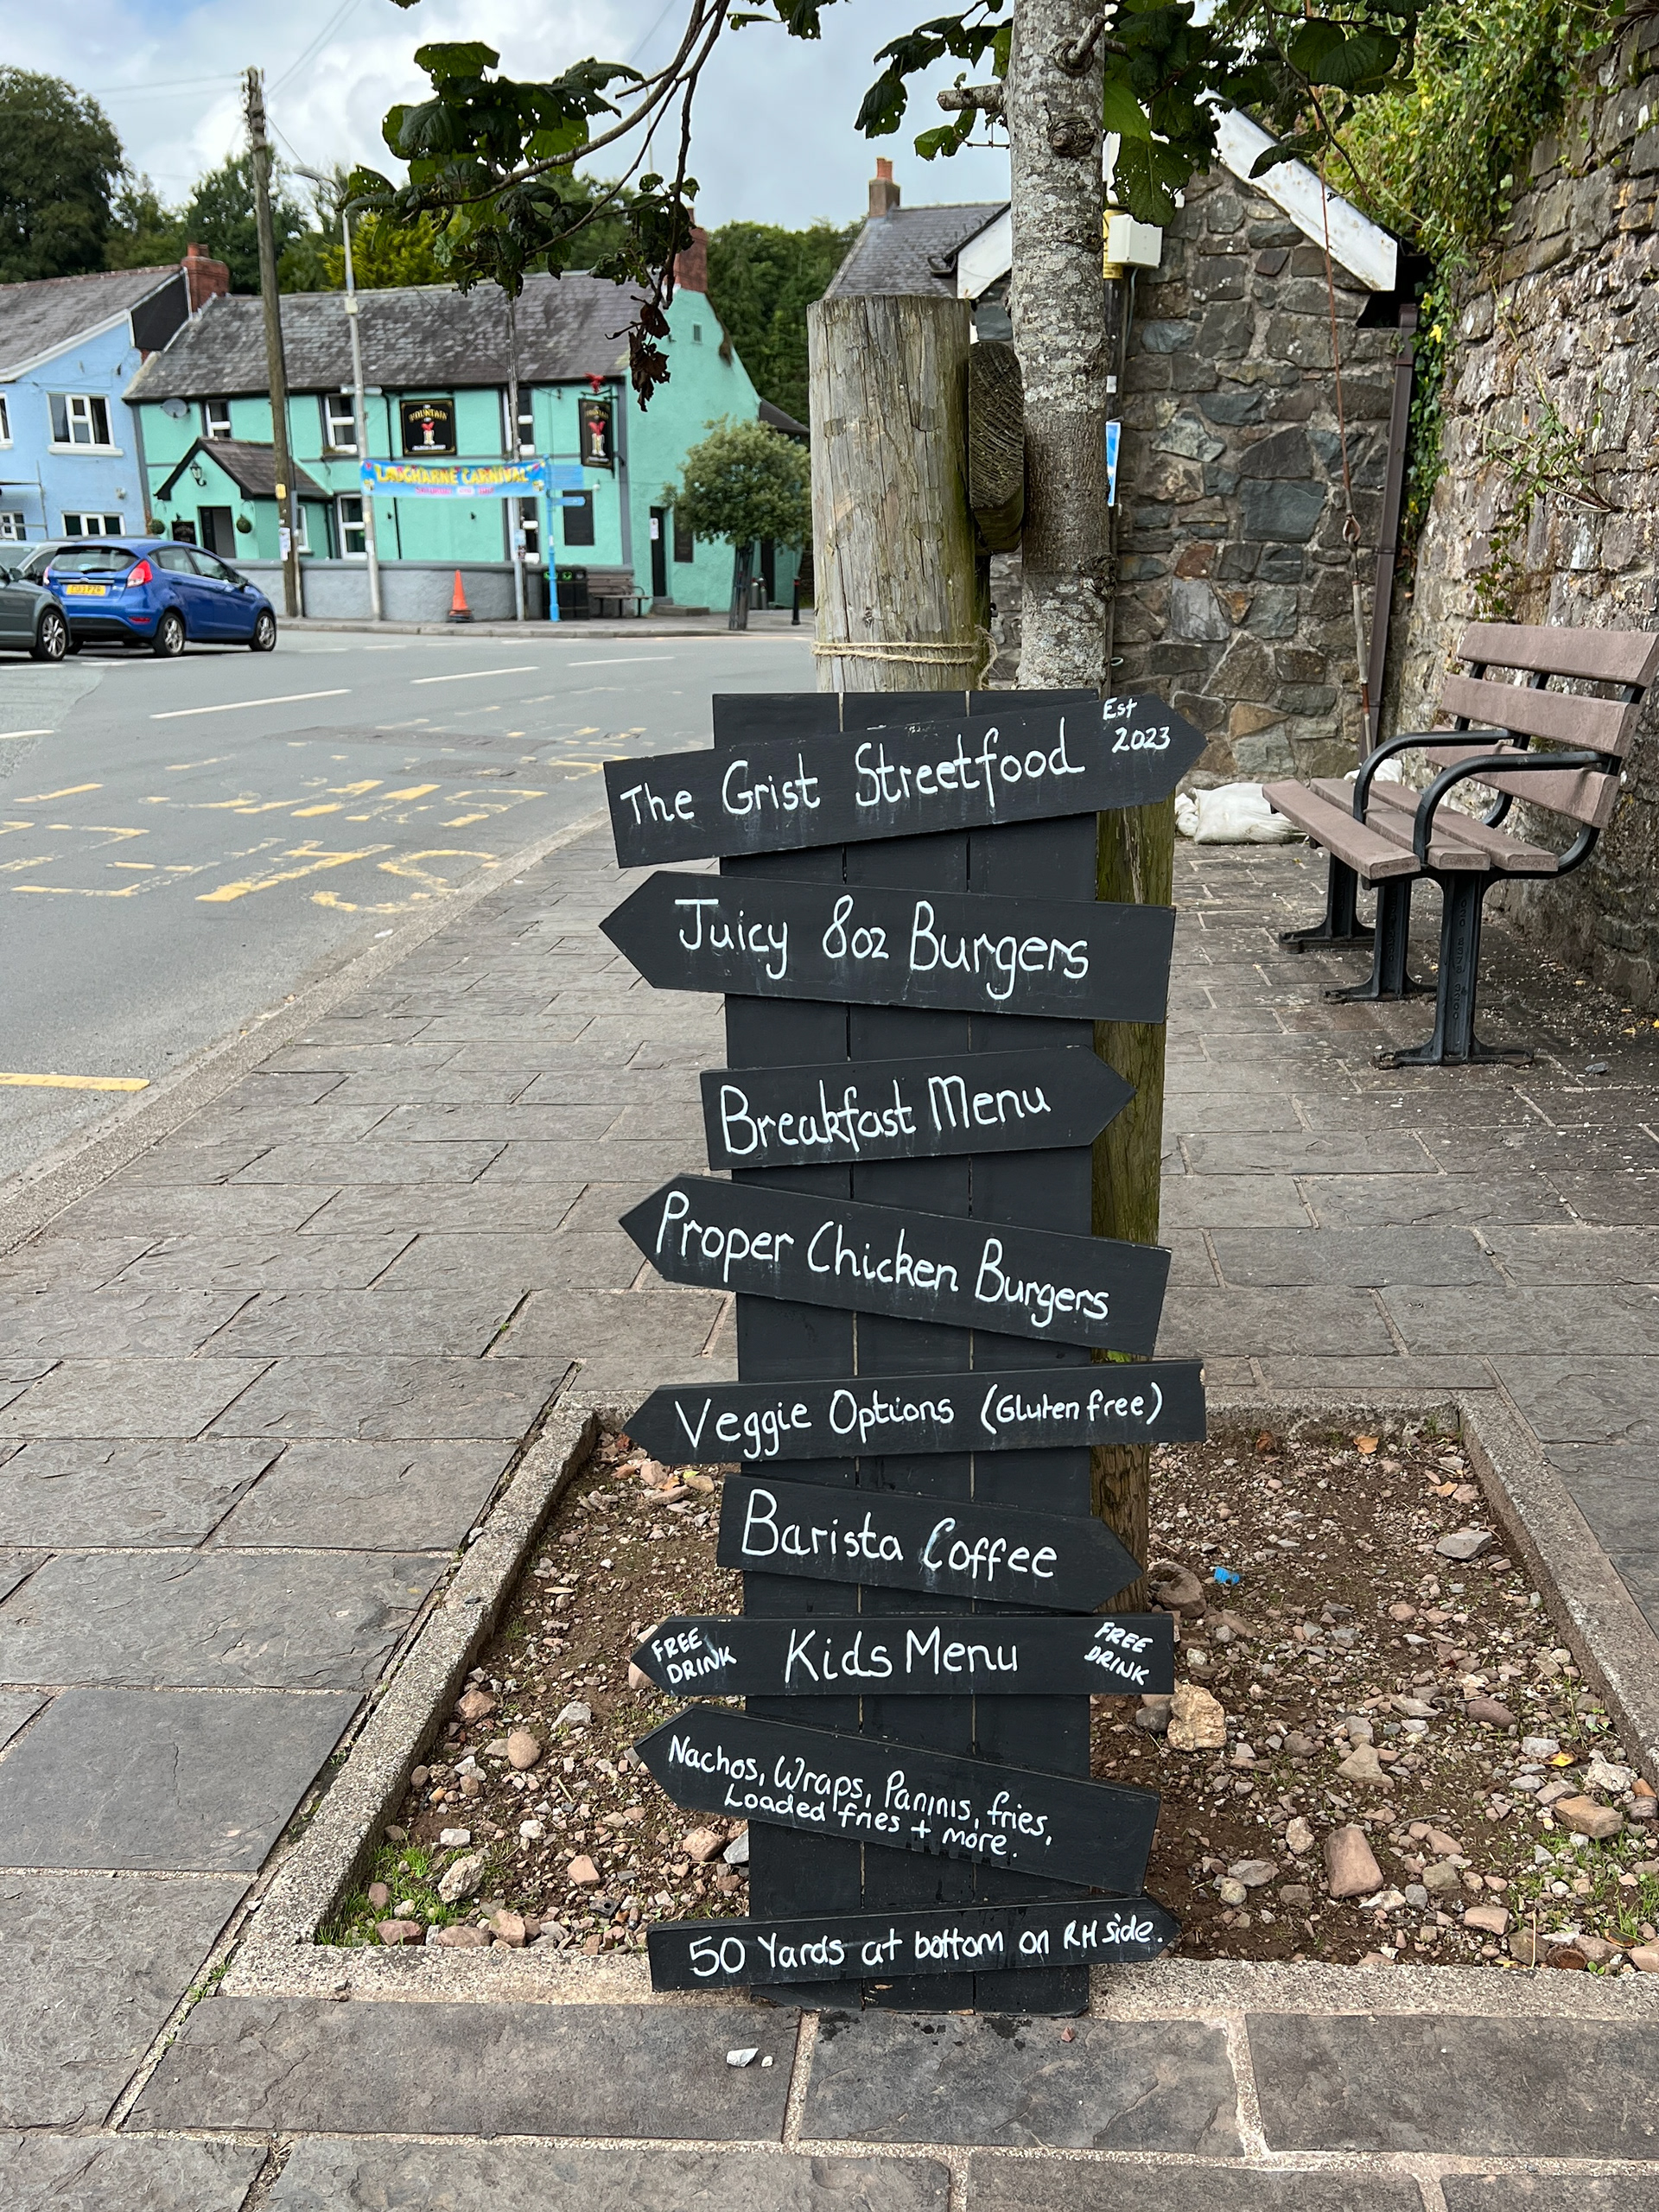 FOUNTAIN
LAUGHARNE CARNIVAL
The Grist Streetfood
Est
2023
Juicy 8oz Burgers
Breakfast Menu
Proper Chicken Burgers
Veggie Options (Gluten free)
Barista Coffee
FREE
DRINK
Kids Menu
FREE
DRINK
Nachos, Wraps, Paninis, fries,
Loaded fries + more.
50 Yards at bottom on RH side.